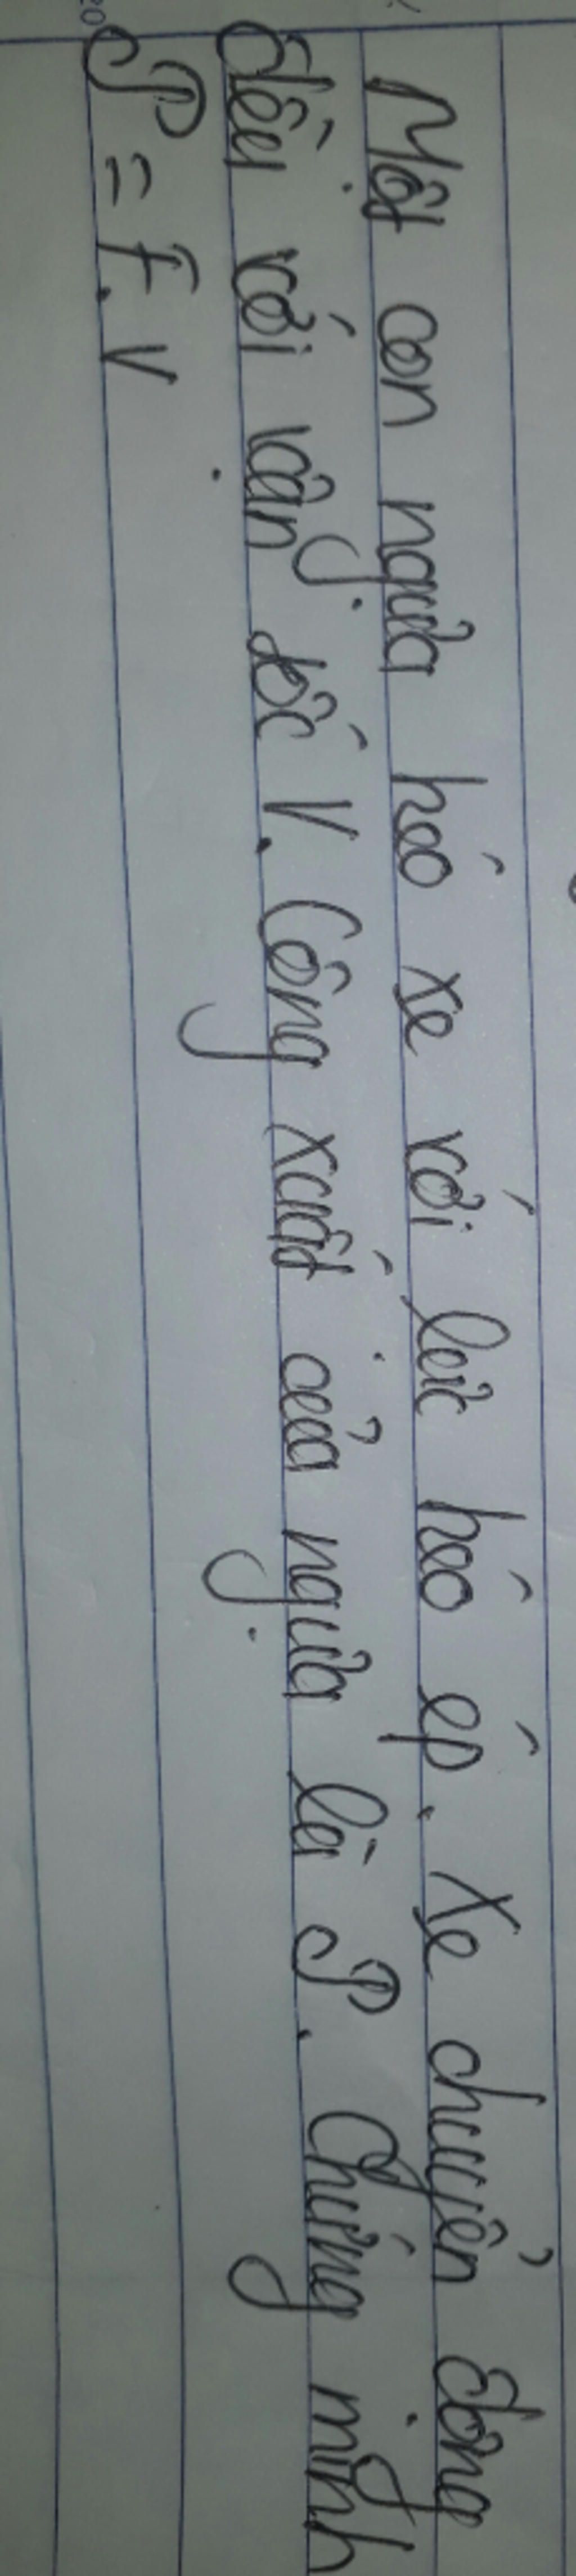 Một con ngựa kéo xe với lực kéo ép. Xe chuyển động
đều với vận tốc V. Công xuất của ngựa là P. Chứng minh
P = F.V